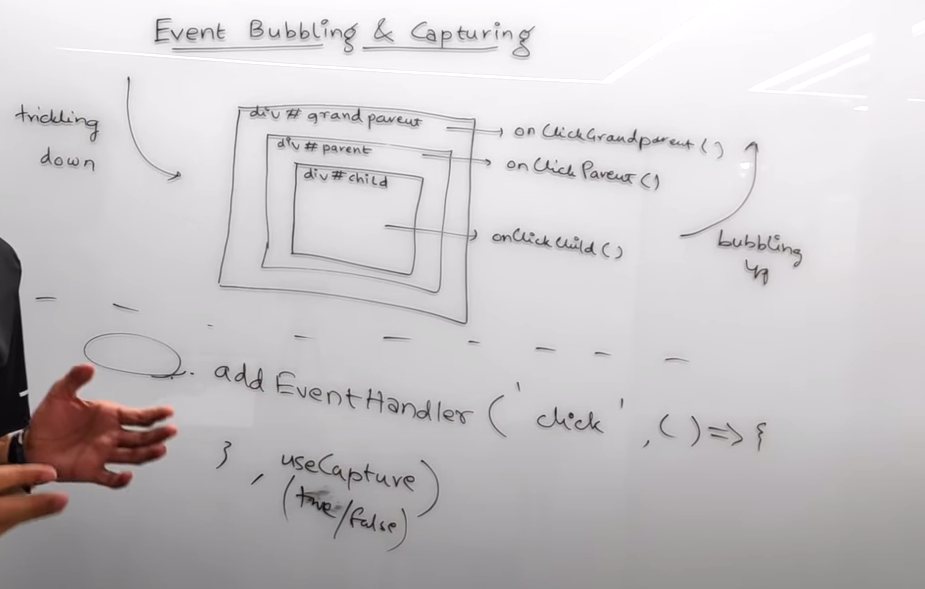 Event Bubbling & Capturing
trickling
down
div # grandparent
onClickGrandparent ( )
div # parent
onClick Parent ( )
div # child
onClickChild ( )
bubbling
up
. addEventHandler ( 'click' , ( ) => {
} , useCapture )
(true/false)